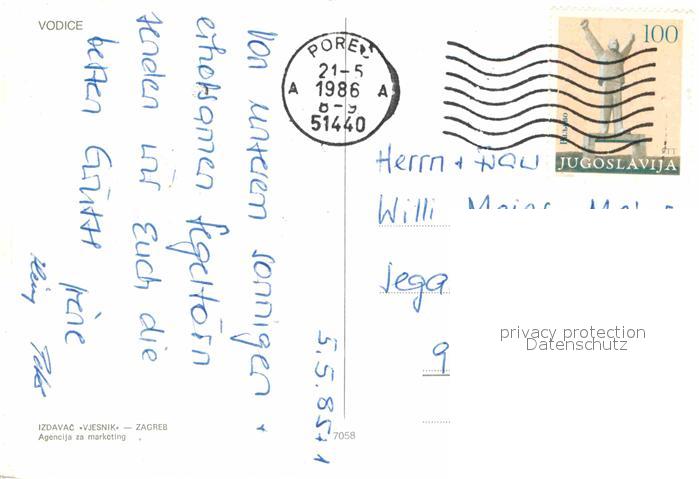 VODICE
5.5.85
Von unserem sonnigen +
erholsamen Segeltörn
senden wir Euch die
besten Grüße
Irene
Heinz Peter
POREČ
21-5
1986
8-9
A A
51440
100
JUGOSLAVIJA
PTT
Herrn + Frau
Willi
9
privacy protection
Datenschutz
IZDAVAČ »VJESNIK« — ZAGREB
Agencija za marketing
7058